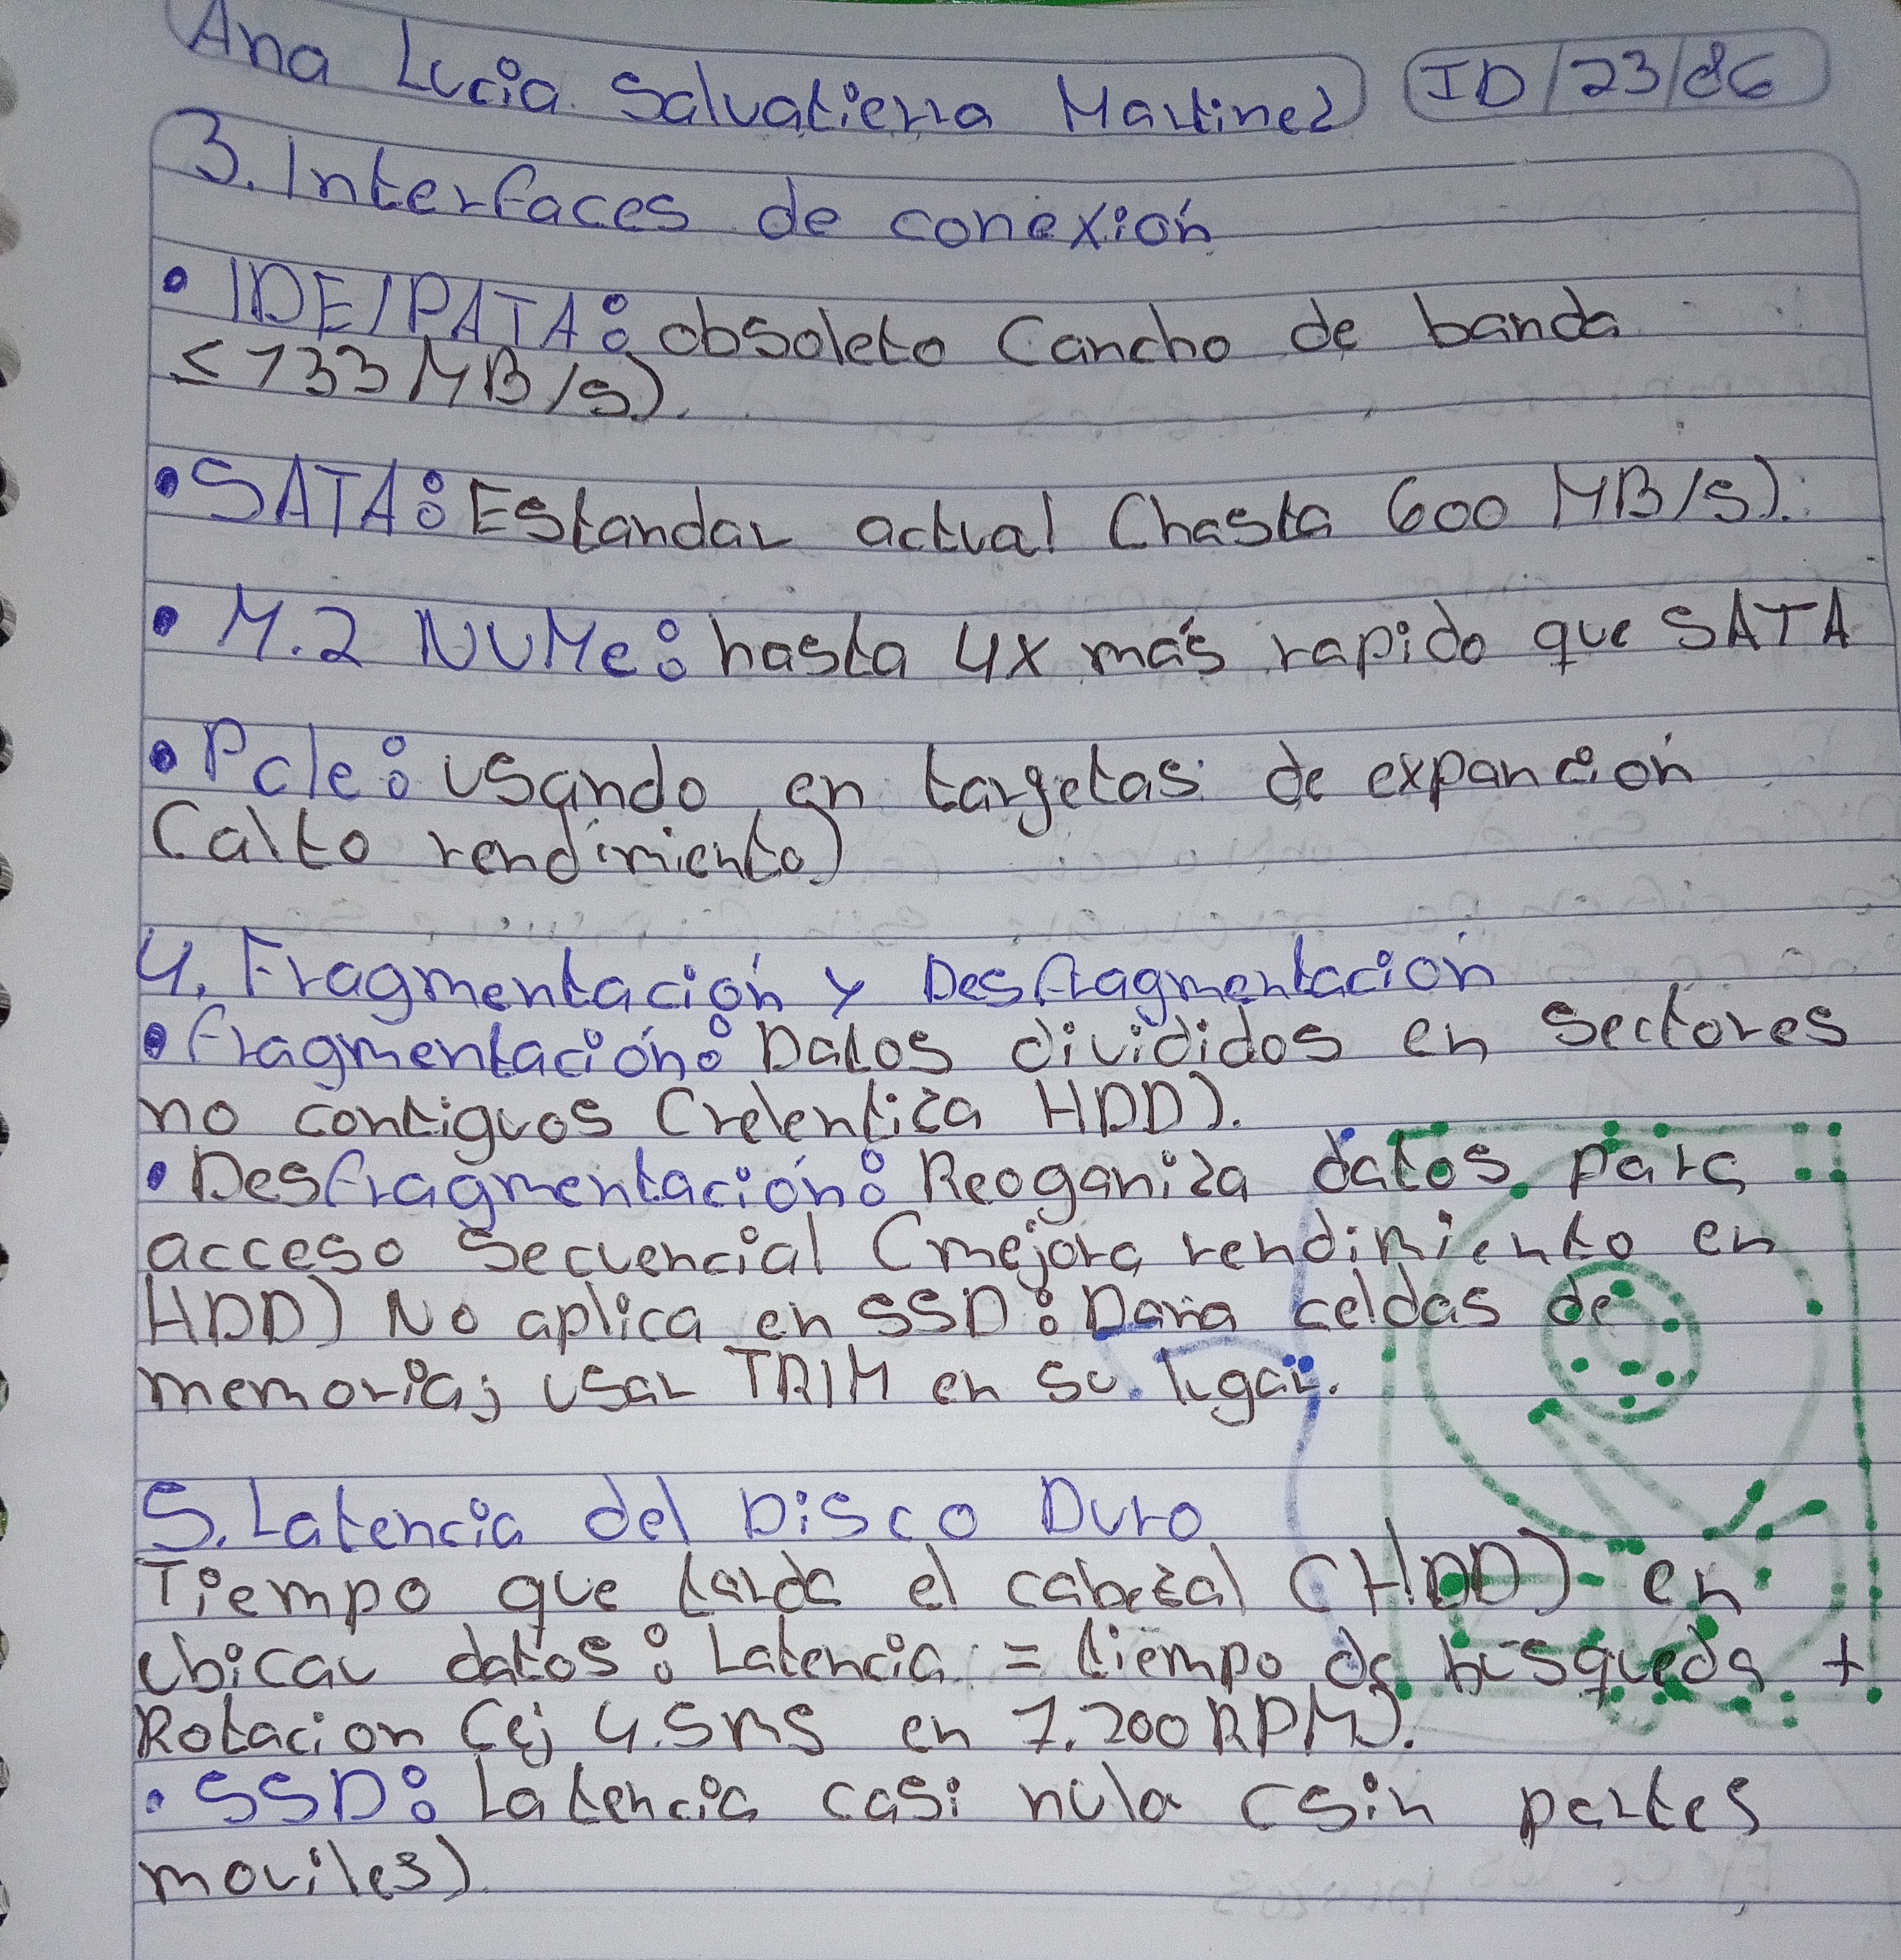 Ana Lucia Salvatierra Martinez ID/23/86
3. Interfaces de conexión
• IDE/PATA: obsoleto (ancho de banda
≤133 MB/s).
• SATA: Estandar actual (hasta 600 MB/s).
• M.2 NVMe: hasta 4x más rapido que SATA
• PcIe: usando en targetas de expanción
(alto rendimiento)
4. Fragmentación y Desfragmentación
• fragmentación: Datos divididos en sectores
no contiguos (relentiza HDD).
• Desfragmentación: Reoganiza datos para
acceso secuencial (mejora rendimiento en
HDD) No aplica en SSD: Daña celdas de
memoria; usar TRIM en su lugar.
5. Latencia del Disco Duro
Tiempo que tarda el cabezal (HDD) en
ubicar datos: Latencia = tiempo de búsqueda +
Rotacion (ej 4.5ms en 7.200 RPM).
• SSD: Latencia casi nula (sin partes
moviles).